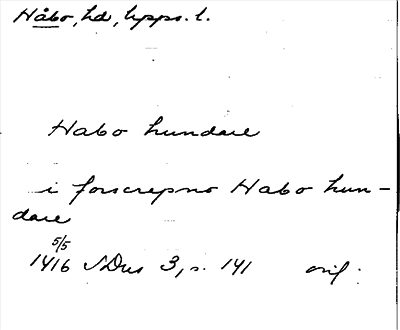 Håbo, hd, Upps. l.
Habo hundare
i forscrepno Habo hun-
dare
5/5
1416 SDns 3, s. 141 orig.